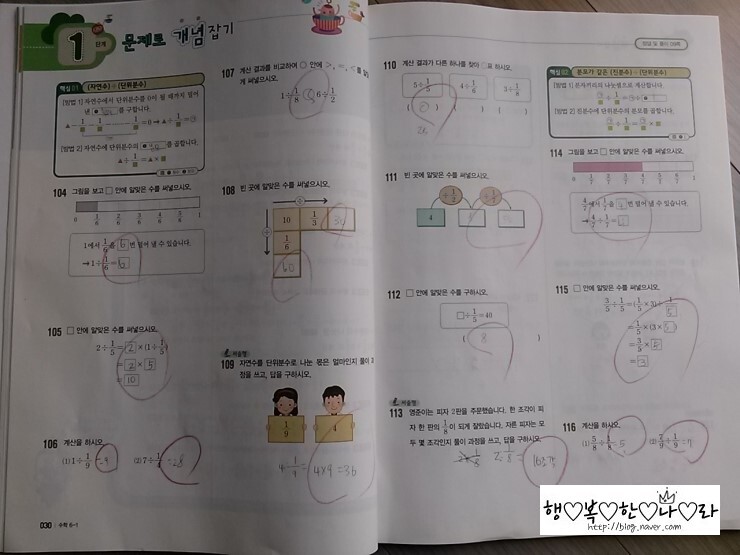 1 단계 문제로 개념 잡기
핵심 01 (자연수)÷(단위분수)
[방법 1] 자연수에서 단위분수를 0이 될 때까지 덜어
낸 를 구합니다.
[방법 2] 자연수에 단위분수의 를 곱합니다.
104 그림을 보고 □ 안에 알맞은 수를 써넣으시오.
0 1/6 2/6 3/6 4/6 5/6 1
1에서 1/6을 6번 덜어 낼 수 있습니다.
→ 1÷1/6=6
105 □ 안에 알맞은 수를 써넣으시오.
2÷1/5=2×(1÷1/5)
=2×5
=10
106 계산을 하시오.
(1) 1÷1/9=9 (2) 7÷1/4=28
030 수학 6-1
107 계산 결과를 비교하여 ○ 안에 >, =, <를
써넣으시오.
1÷1/8 6÷1/2
108 빈 곳에 알맞은 수를 써넣으시오.
10 1/3 30
1/6
60
서술형
109 자연수를 단위분수로 나눈 몫은 얼마인지 풀이 과
정을 쓰고, 답을 구하시오.
1/9 4
4 1/9 = 4×9=36
110 계산 결과가 다른 하나를 찾아 ○표 하시오.
5÷1/5 4÷1/6 3÷1/8
( ) ( ) ( )
111 빈 곳에 알맞은 수를 써넣으시오.
4
112 □ 안에 알맞은 수를 구하시오.
□÷1/5=40
( 8 )
서술형
113 영준이는 피자 2판을 주문했습니다. 한 조각이 피
자 한 판의 1/8이 되게 잘랐습니다. 자른 피자는 모
두 몇 조각인지 풀이 과정을 쓰고, 답을 구하시오.
2÷1/8 = 16조각
핵심 02 분모가 같은 (진분수)÷(단위분수)
[방법 1] 분자끼리의 나눗셈으로 계산합니다.
[방법 2] 진분수에 단위분수의 분모를 곱합니다.
114 그림을 보고 □ 안에 알맞은 수를 써넣으시오.
0 1/7 2/7 3/7 4/7 5/7 6/7 1
4/7에서 1/7을 4번 덜어 낼 수 있습니다.
→ 4/7÷1/7=
115 □ 안에 알맞은 수를 써넣으시오.
3/5÷1/5=(1/5×3)÷1/5
=1/5×(3×5)
=3/5×5
=3
116 계산을 하시오.
(1) 5/8÷1/8=5 (2) 7/9÷1/9=7
행♡복♡한♡나♡라
http://blog.naver.com/